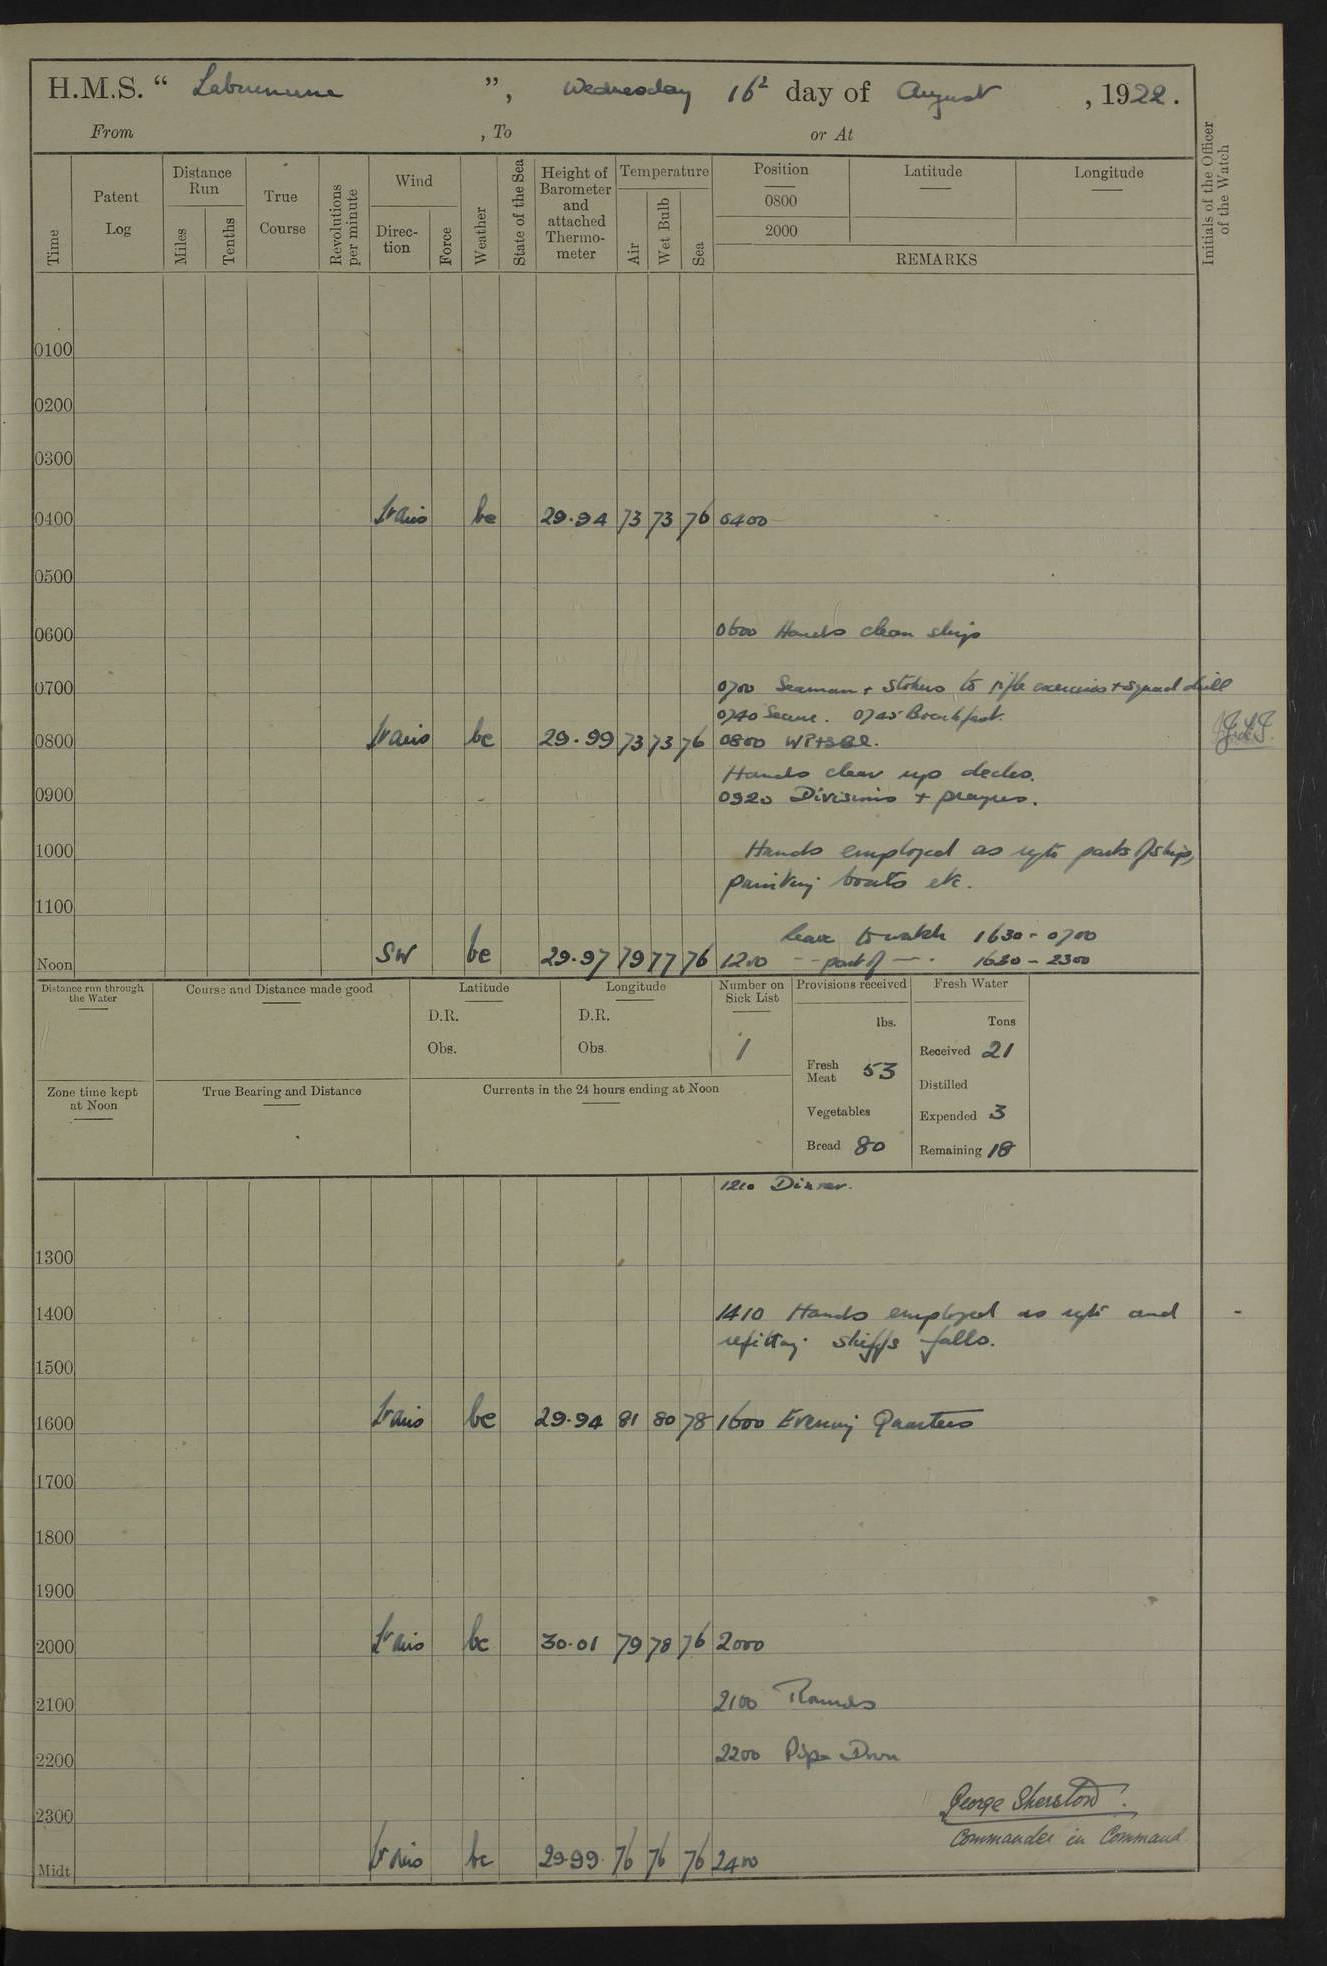 H.M.S. “ Laburnum ”, Wednesday 16th day of August , 1922.
From , To or At
Time
Patent Log
Distance Run
Miles
Tenths
True Course
Revolutions per minute
Wind
Direc- tion
Force
Weather
State of the Sea
Height of Barometer and attached Thermo- meter
Temperature
Air
Wet Bulb
Sea
Position
0800
2000
Latitude
Longitude
REMARKS
Initials of the Officer of the Watch
0100
0200
0300
0400 Lt airs bc 29.94 73 73 76 0400
0500
0600 0600 Hands clean ship
0700 0700 Seamen + Stokers to rifle exercises + squad drill
0740 Secure. 0745 Breakfast.
0800 Lt airs bc 29.99 73 73 76 0800
Hands clear up decks.
0900 0920 Divisions + prayers.
1000 Hands employed as reqte parts of ship,
painting boats etc.
1100
leave to watch 1630 - 0700
Noon SW bc 29.97 79 77 76 1200 - - part of - - . 1630 - 2300
Distance run through the Water
Course and Distance made good
Latitude
D.R.
Obs.
Longitude
D.R.
Obs.
Number on Sick List
1
Provisions received
lbs.
Fresh Meat 53
Vegetables
Bread 80
Fresh Water
Tons
Received 21
Distilled
Expended 3
Remaining 18
Zone time kept at Noon
True Bearing and Distance
Currents in the 24 hours ending at Noon
1210 Dinner.
1300
1400 1410 Hands employed as reqte and
refitting skiffs falls.
1500
1600 Lt airs bc 29.94 81 80 78 1600 Evening Quarters
1700
1800
1900
2000 Lt airs bc 30.01 79 78 76 2000
2100 2100 Rounds
2200 2200 Pipe Down
George Sherston.
2300
Commander in Command
Midt Lt airs bc 29.99 76 76 76 2400